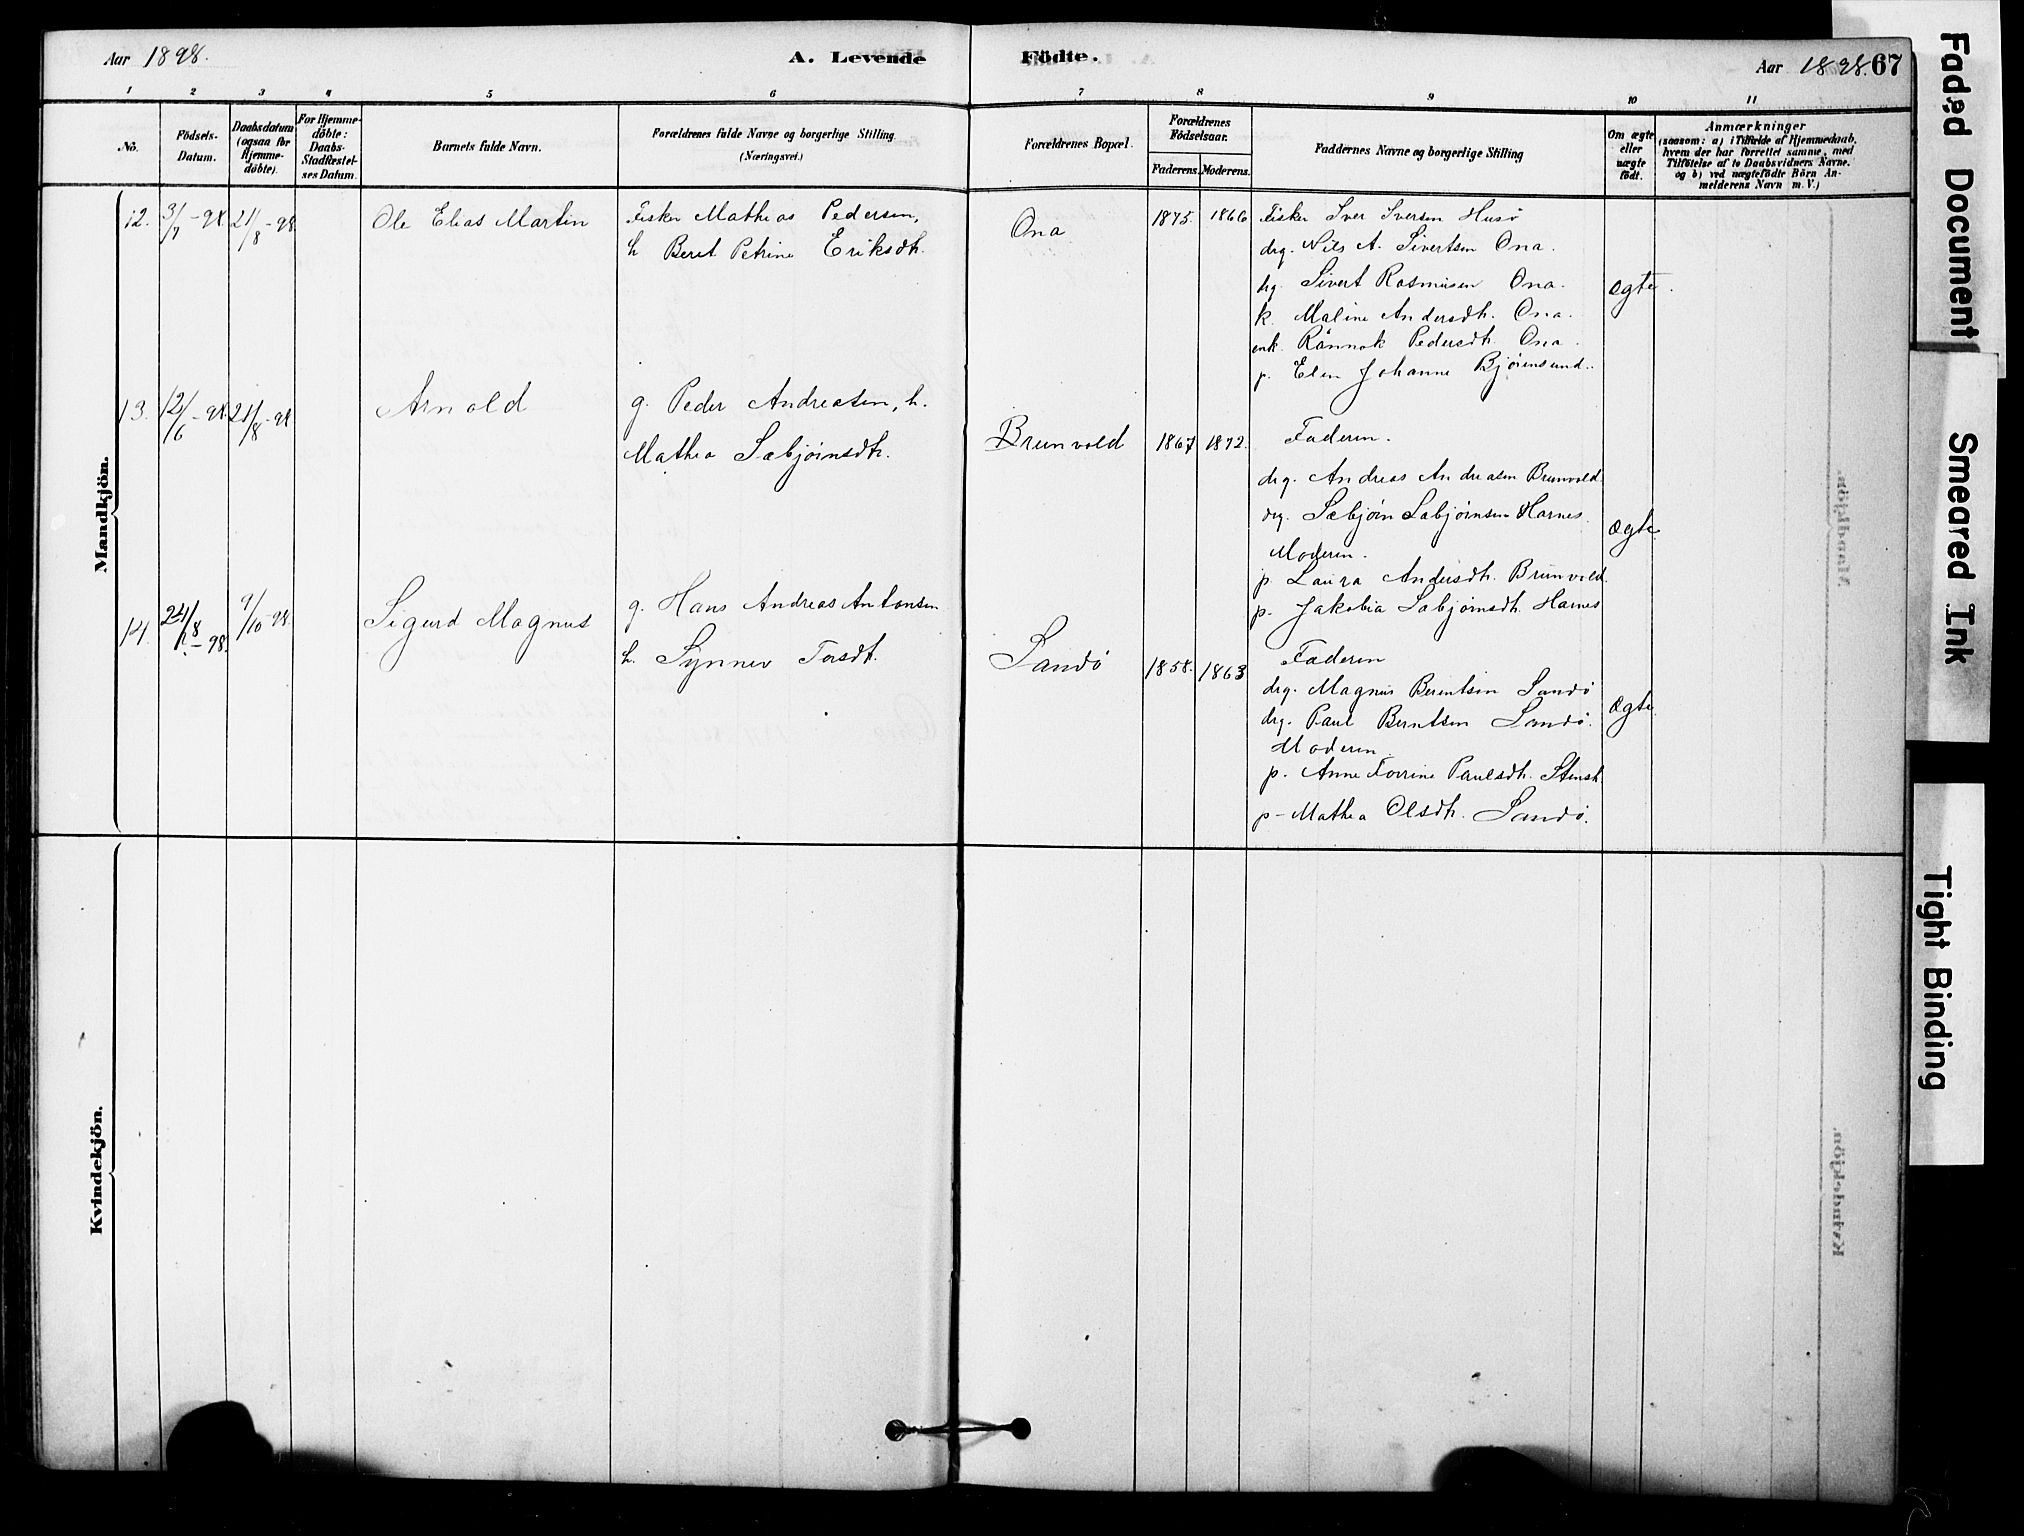 Aar 1898.
A. Levende Födte.
Aar 1898. 67
1 2 3 4 5 6 7 8 9 10 11
No.
Födsels-Datum.
Daabsdatum (ogsaa for Hjemme-döbte).
For Hjemme-döbte: Daabs-Stadfæstel-ses Datum.
Barnets fulde Navn.
Forældrenes fulde Navne og borgerlige Stilling.
(Næringsvei.)
Forældrenes Bopæl.
Forældrenes Födselsaar.
Faderens. Moderens.
Faddernes Navne og borgerlige Stilling
Om ægte eller uægte födt.
Anmærkninger
(saasom: a) i Tilfælde af Hjemmedaab,
hvem der har forrettet samme, med
Tilföielse af to Daabsvidners Navne.
og b) ved uægtefödte Börn An-
melderens Navn m. V.)
Mandkjön.
12. 3/7-98. 21/8-98. Ole Elias Martin
Fisker Mathias Pedersen,
h Berit Petrine Eriksdtr.
Ona 1875. 1866
Fisker Iver Iversen Husø
drg. Nils A. Sivertsen Ona.
drg. Sivert Rasmusen Ona.
k. Maline Andersdtr. Ona.
enk. Rønnok Pedersdtr. Ona.
p. Elen Johanne Bjørnsund..
ægte.
13. 12/6-98. 21/8-98 Arnold
g. Peder Andreasen, h.
Mathea Sæbjørnsdtr.
Brunvold 1867 1872.
Faderen.
drg. Andreas Andreasen Brunvold.
drg. Sæbjørn Sæbjørnsen Harnes.
Moderen.
p. Laura Andersdtr. Brunvold.
p. Jakobia Sæbjørnsdtr. Harnes
ægte
14. 24/8-98. 9/10-98 Sigurd Magnus
g. Hans Andreas Antonsen
h. Synnev Torsdt.
Sandø 1858. 1863
Faderen
drg. Magnus Berentsen Sandø
drg. Paul Berntsen Sandø.
Moderen.
p. Anne Torrine Paulsdtr.
p- Mathea Olsdtr. Sandø.
ægte.
Kvindekjön.
Faded Document
Smeared Ink
Tight Binding